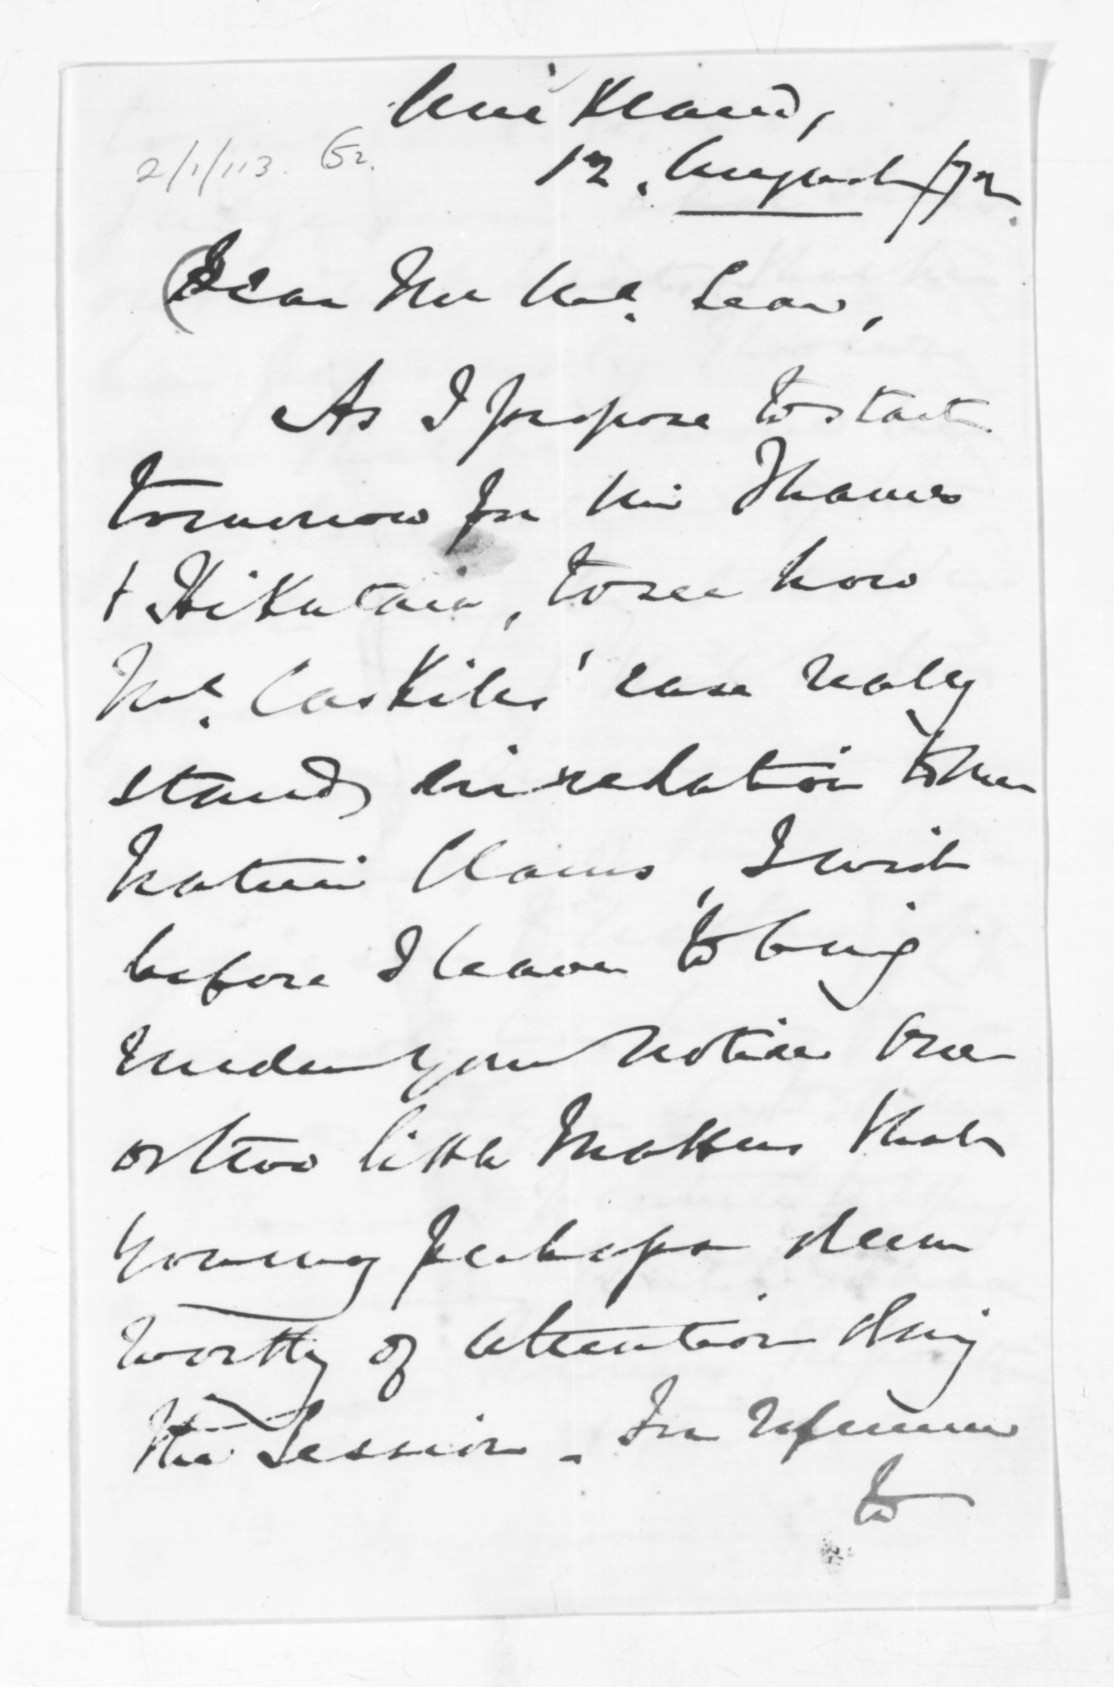 Auckland,
12. August/72.
2/1/113. G2.
Dear Mr McLean,
As I propose to start
tomorrow for the Thames
& Hikutaia, to see how
Mc. Caskills' case really
stands in relation to the
Native Claims, I wish
before I leave to bring
under your notice one
or two little matters that
you may perhaps deem
worthy of attention dur'g
the Session. In reference
to